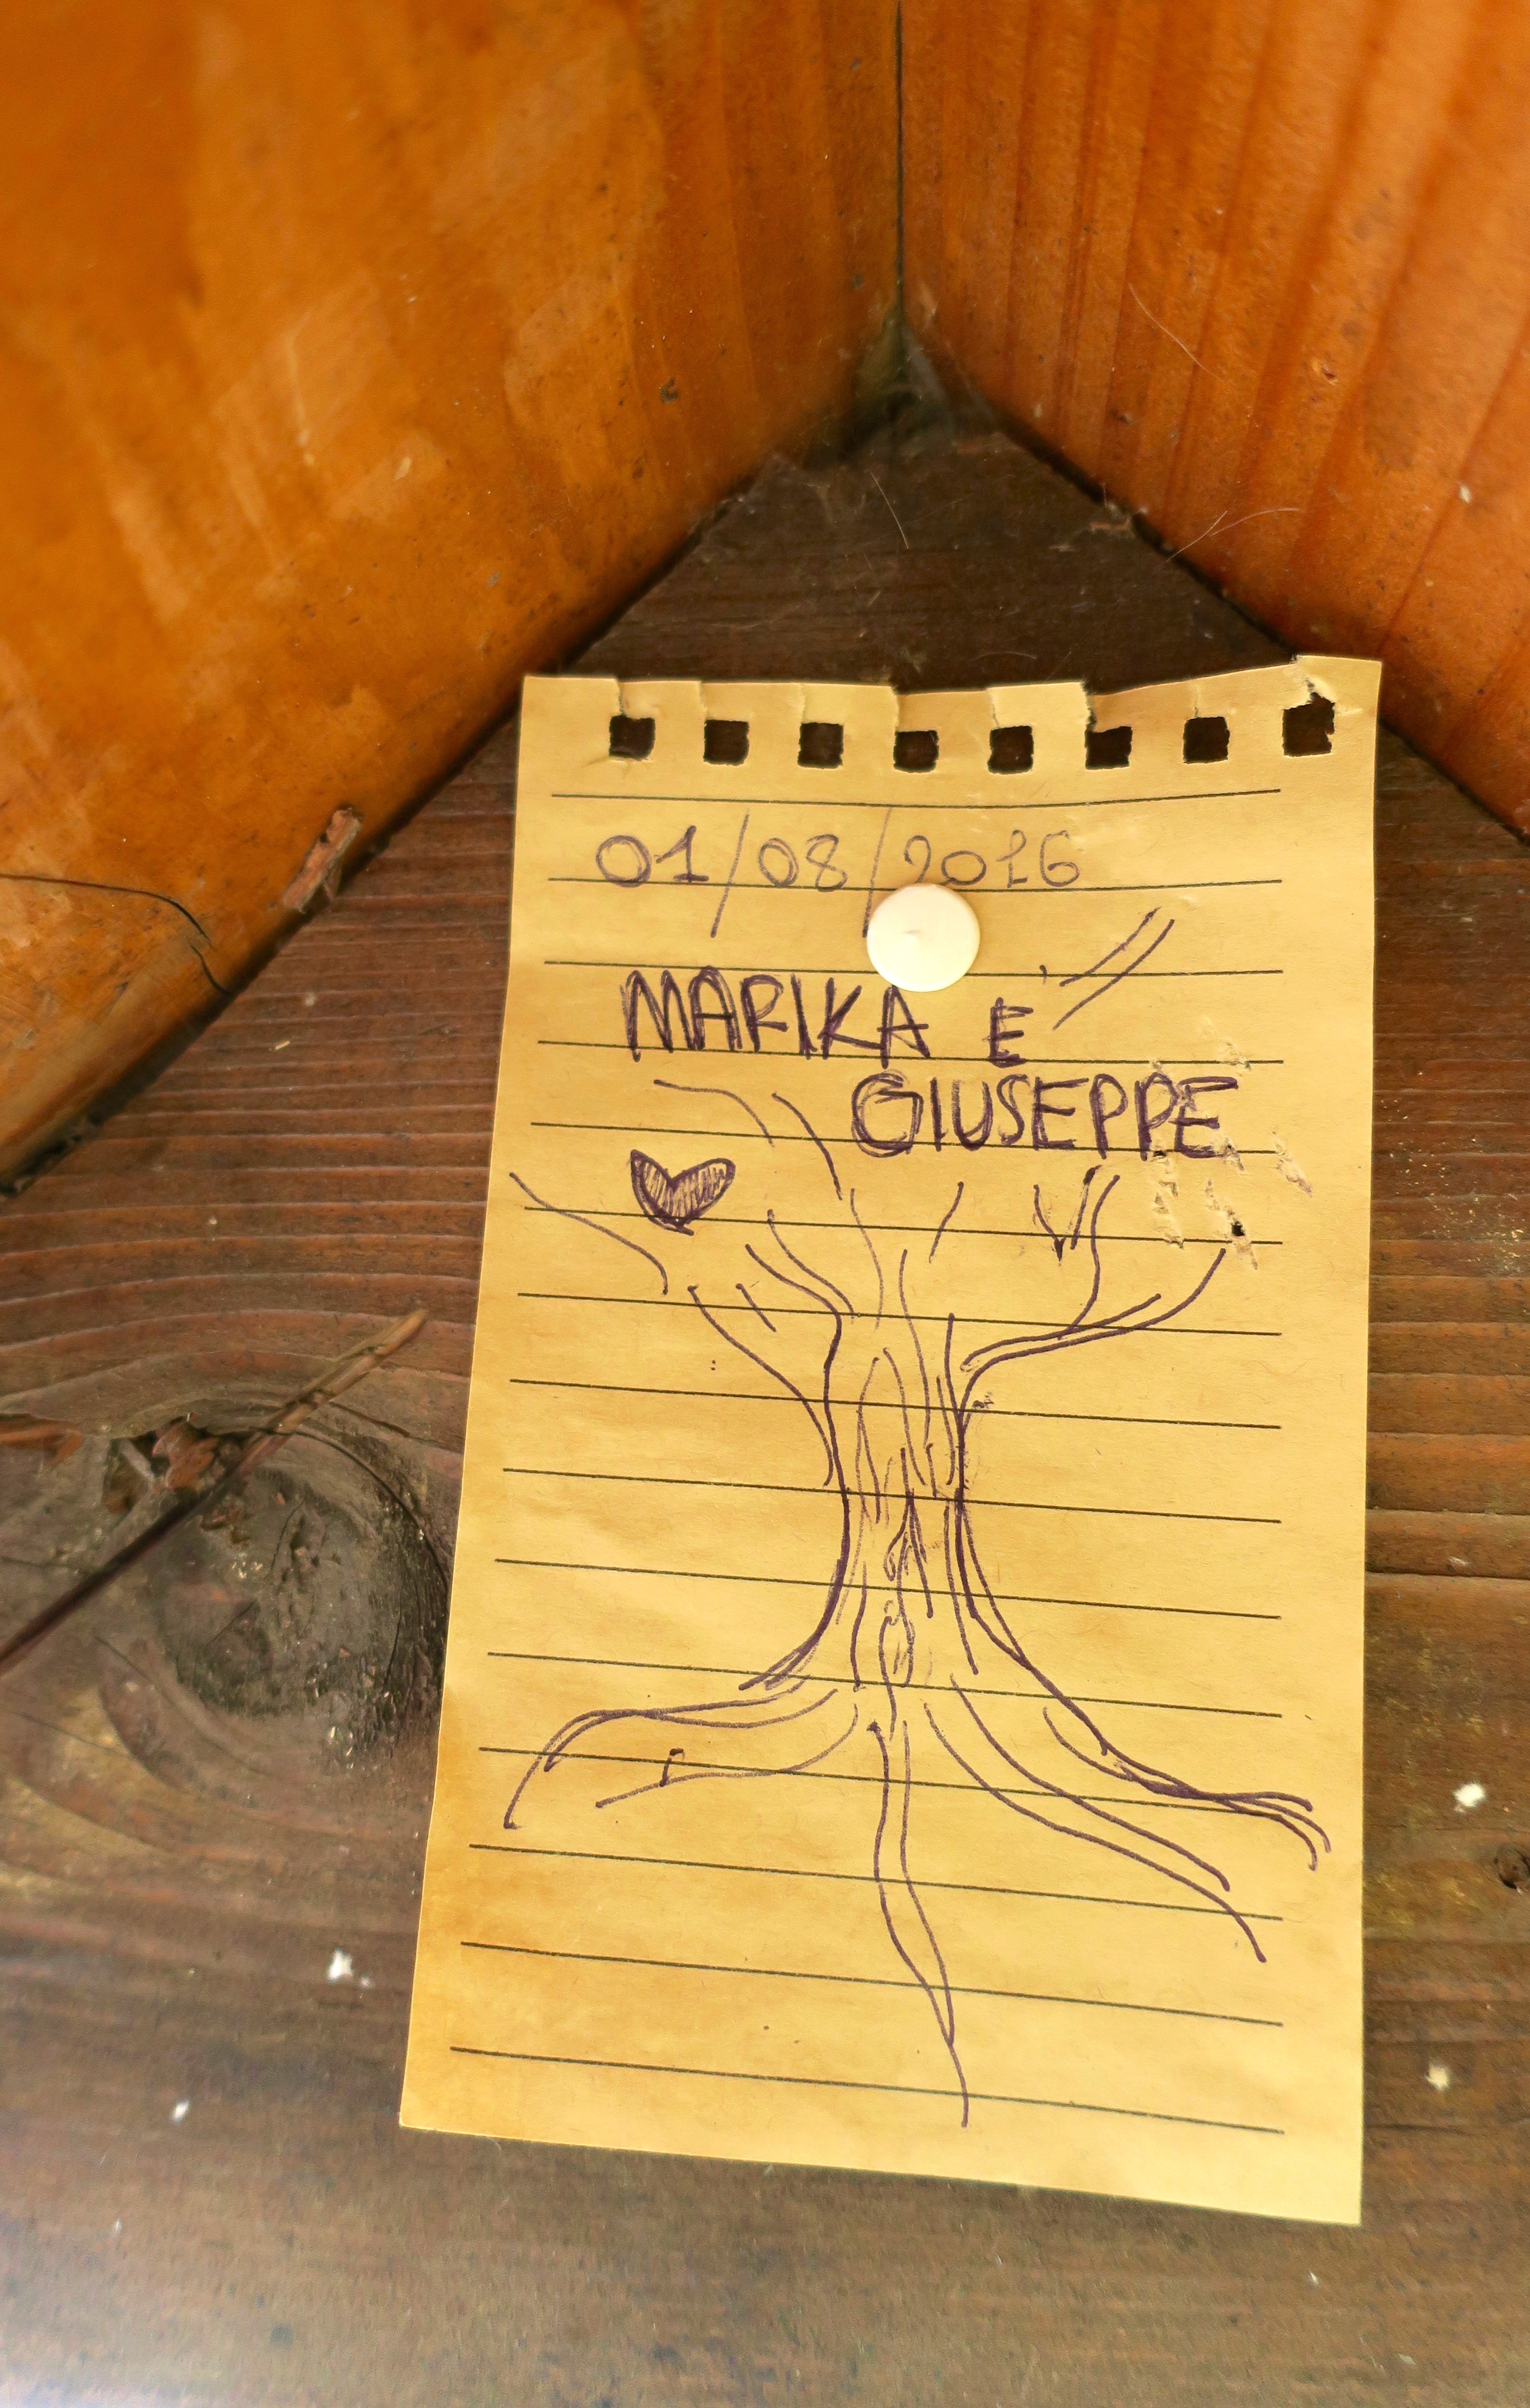 01/08/2016
MARIKA E
GIUSEPPE